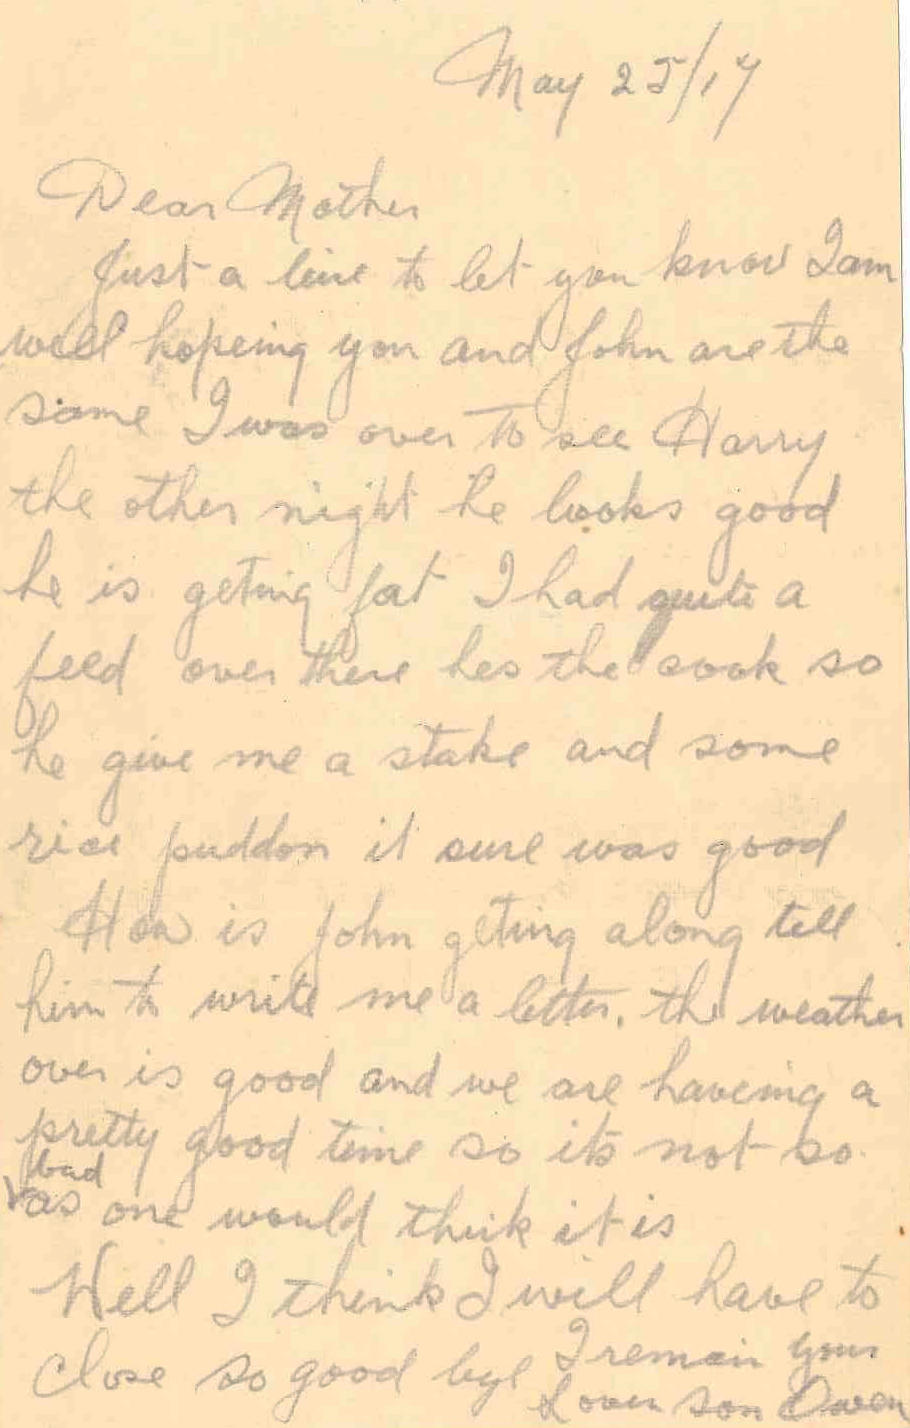 May 25/17
Dear Mother
Just a line to let you know I am
well hopeing you and John are the
same I was over to see Harry
the other night he looks good
he is geting fat I had quite a
feed over there hes the cook so
he give me a stake and some
rice puddon it sure was good
How is John geting along tell
him to write me a letter. the weather
over is good and we are haveing a
pretty good time so its not so
bad
as one would think it is
Well I think I will have to
close so good bye I remain your
son Owen